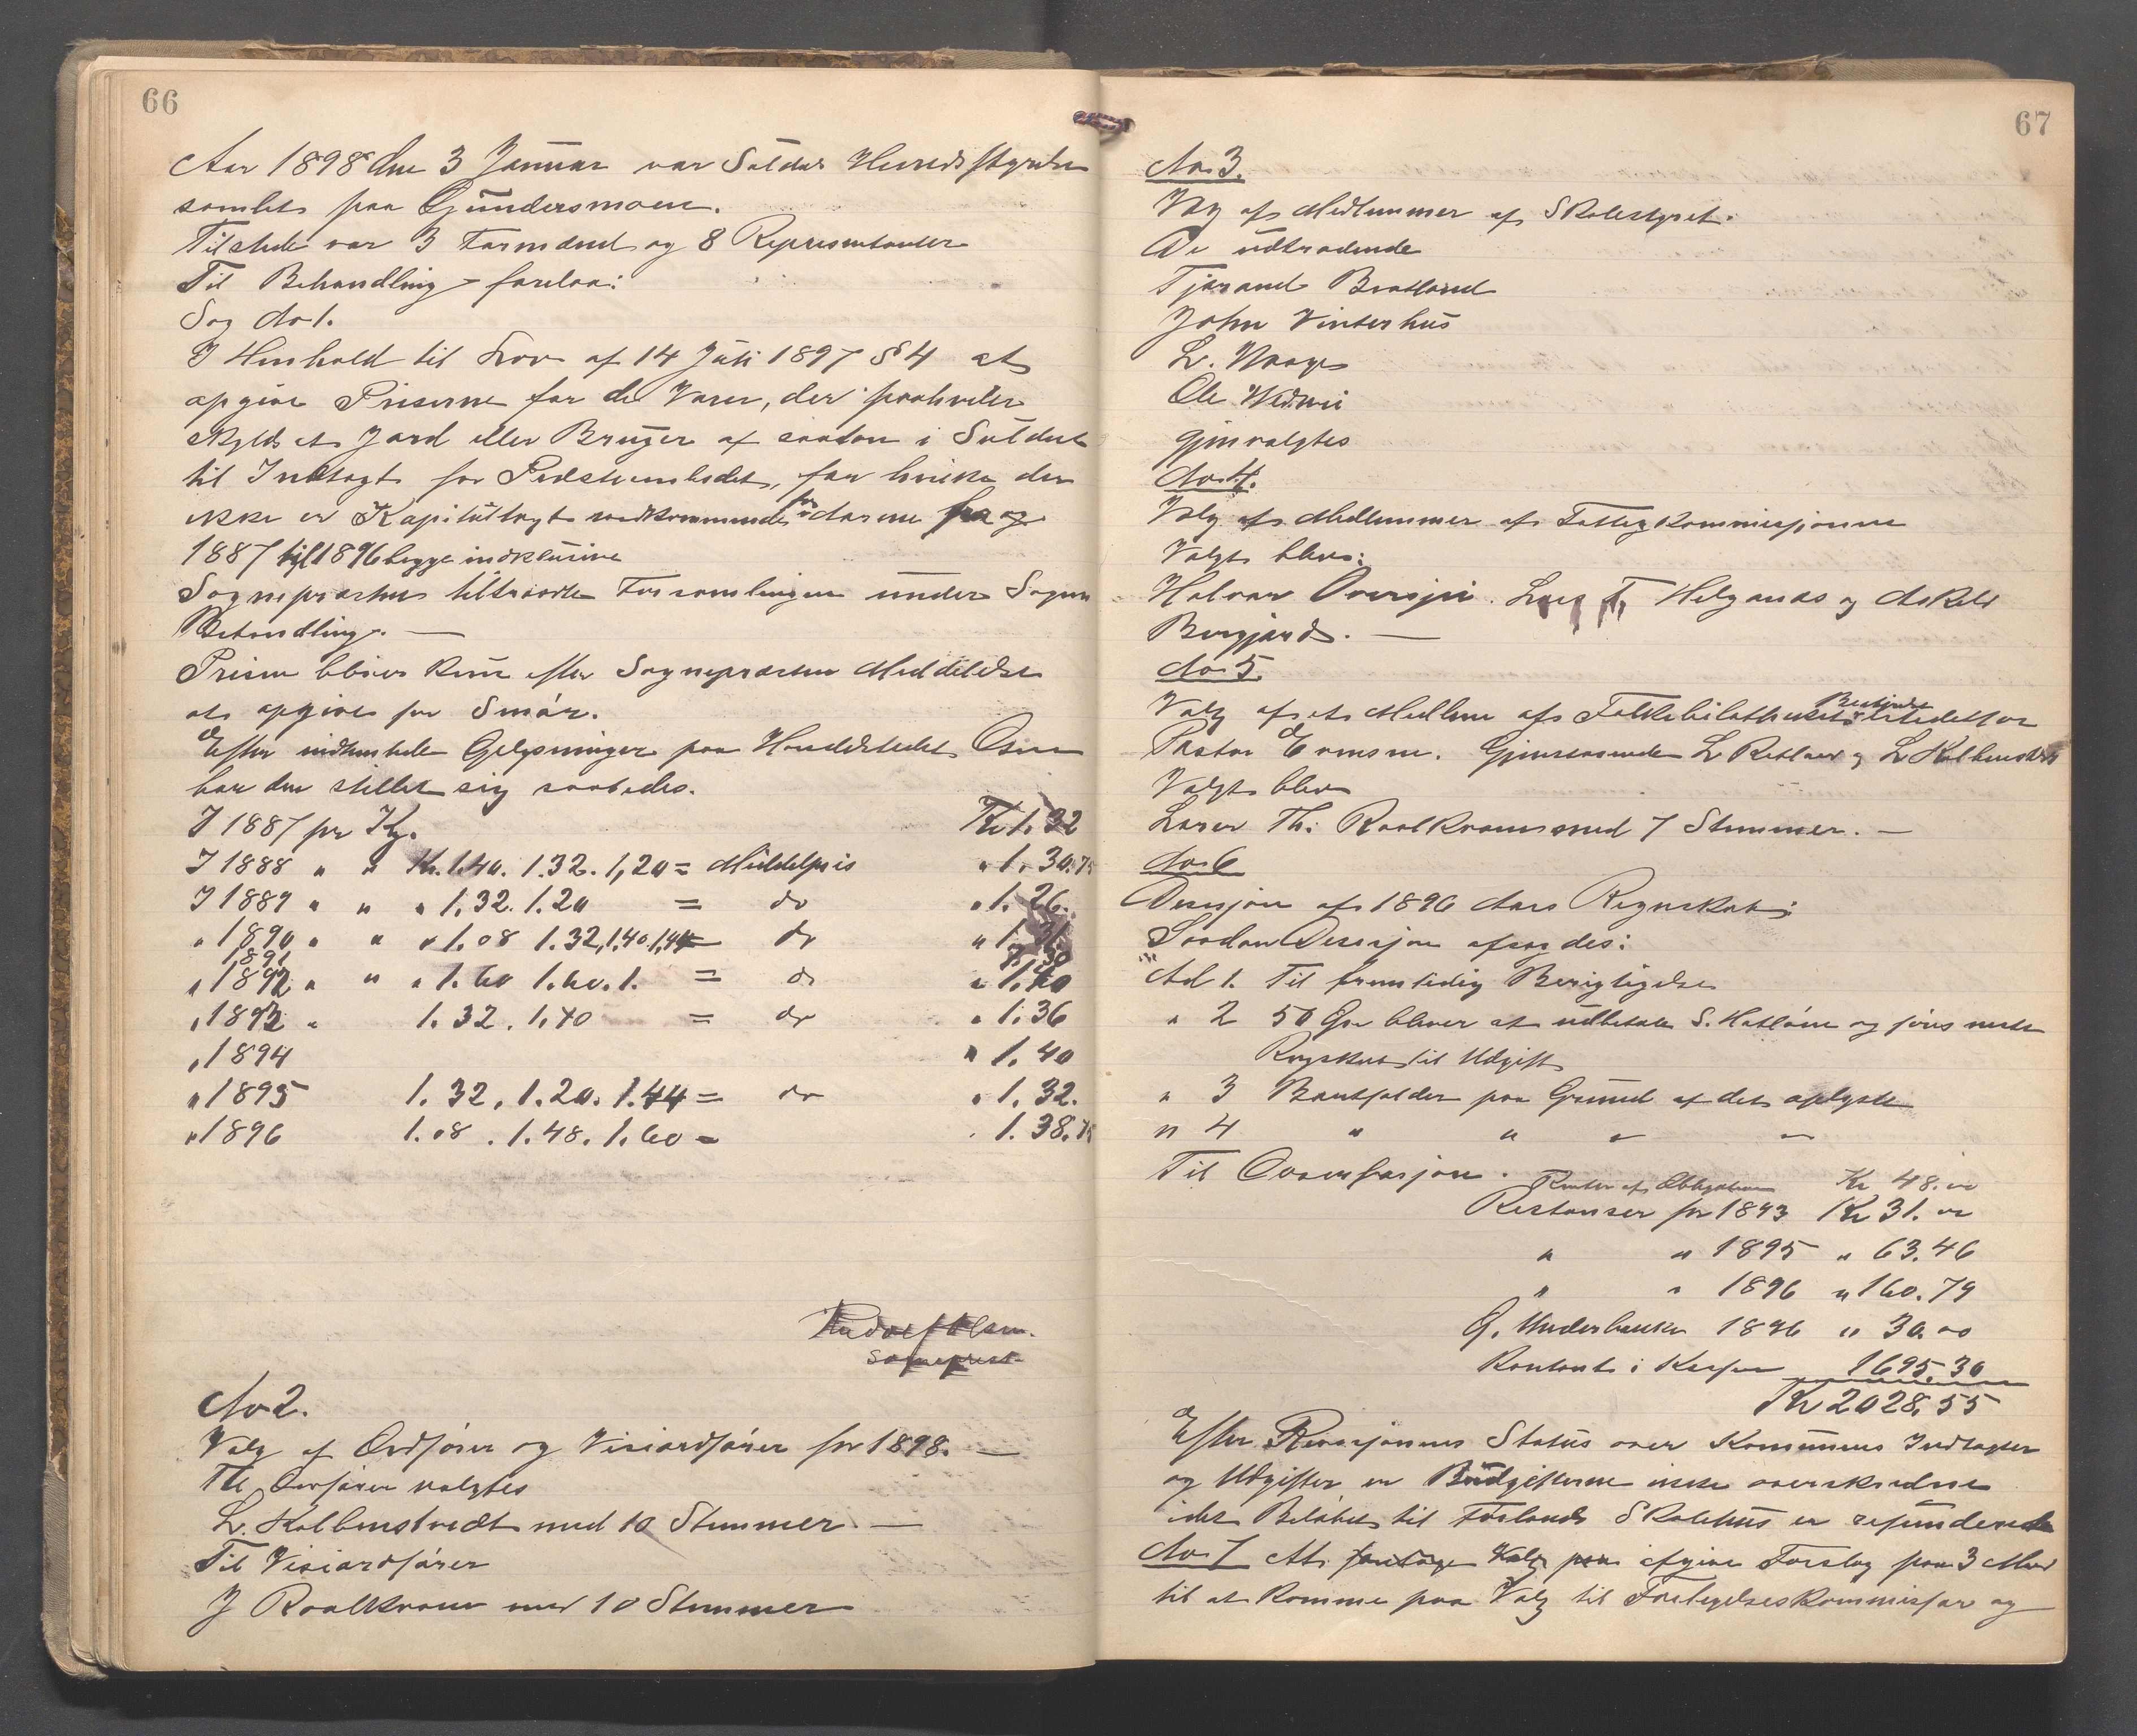 66
Aar 1898 den 3 Januar var Suldals Herredsstyrelse
samlet paa Gundersmoen.
Tilstede var 3 Formænd og 8 Repræsentanter
Til Behandling forelaa:
Sag No 1.
I Henhold til Lov af 14 Juli 1897 § 4 at
opgive Priserne for de Varer, der paahviler
skyldsat Jord eller Bruger af saadan i Suldal
til Indtægt for Præsteembedet, for hvilke der
ikke er Kapitultagst vedkommende for Aarene fra og
1887 til 1896 begge inklusive
Sognepræsten tiltraadte Forsamlingen under Sagens
Behandling. —
Prisen bliver kun efter Sognepræsten Meddelelse
at opgive for Smør.
Efter indhentede Oplysninger paa Handelsstedet Osen
har den stillet sig saaledes.
I 1887 pr Kg. Kr 1.32
I 1888 " " Kr. 1.40. 1.32. 1,20 = Middelpris " 1.30.75
I 1889 " " " 1.32. 1.20 = do " 1.26.
" 1890 " " " 1.08 1.32, 1.40. 1,44 = do " 1.31.
1891 1.30
" 1892 " " " 1.60 1.60. 1. = do " 1.40
" 1893 " 1.32. 1.40 = do " 1.36
" 1894 " 1.40
" 1895 1.32. 1.20. 1.44 = do " 1.32.
" 1896 1.08. 1.48. 1.60 = . 1.38.75
Rudolf Olsen.
sogneprest
No 2.
Valg af Ordfører og Viseordfører for 1898. —
Til Ordfører valgtes
L. Kolbenstvedt med 10 Stemmer —
Til Viseordfører
J Roalkvam med 10 Stemmer
67
No 3.
Valg af Medlemmer af Skolestyret.
De udtrædende
Tjerand Bratland
John Vinterhus
L. Waage
Ole
gjenvalgtes
No 4.
Valg af Medlemmer af Fattigkommisjonen
Valgt blev:
Halvor Oversjøi. Lars T. Helganes og Askild
Bergjord. —
No 5.
Valg af et Medlem af Folkebibliothekets Bestyrelse istedetfor
Pastor Evensen. Gjenværende L Retland og L Kolbenstvedt
Valgt blev
Lærer Th. Roalkvam med 7 Stemmer. —
No 6
Desisjon af 1896 Aars Regnskab:
Saadan Desisjon afsagdes:
Ad 1. Til fremtidig Berigtigelse
" 2 50 Øre bliver at udbetale S. Hatløen og føres neste
Regnskab til Udgift
" 3 Bortfalder paa Grund af det oplyste
" 4 " " " "
Til Ovenførsjon.
Renter af Obligation Kr 48.00
Restanser for 1893 Kr 31.00
" " 1895 " 63.46
" " 1896 " 160.79
G. Underbakke 1896 " 30.00
Kontant i Kassen 1695.30
Kr 2028.55
Efter Revisjonens Status over Kommunens Indtægter
og Udgifter er Budgetterne ikke overskredne
idet Beløbet til Foslands Skolehus er refunderet
No 7 At foretage Valg paa afgive Forslag paa 3 Mænd
til at komme paa Valg til Forligelseskommissær og